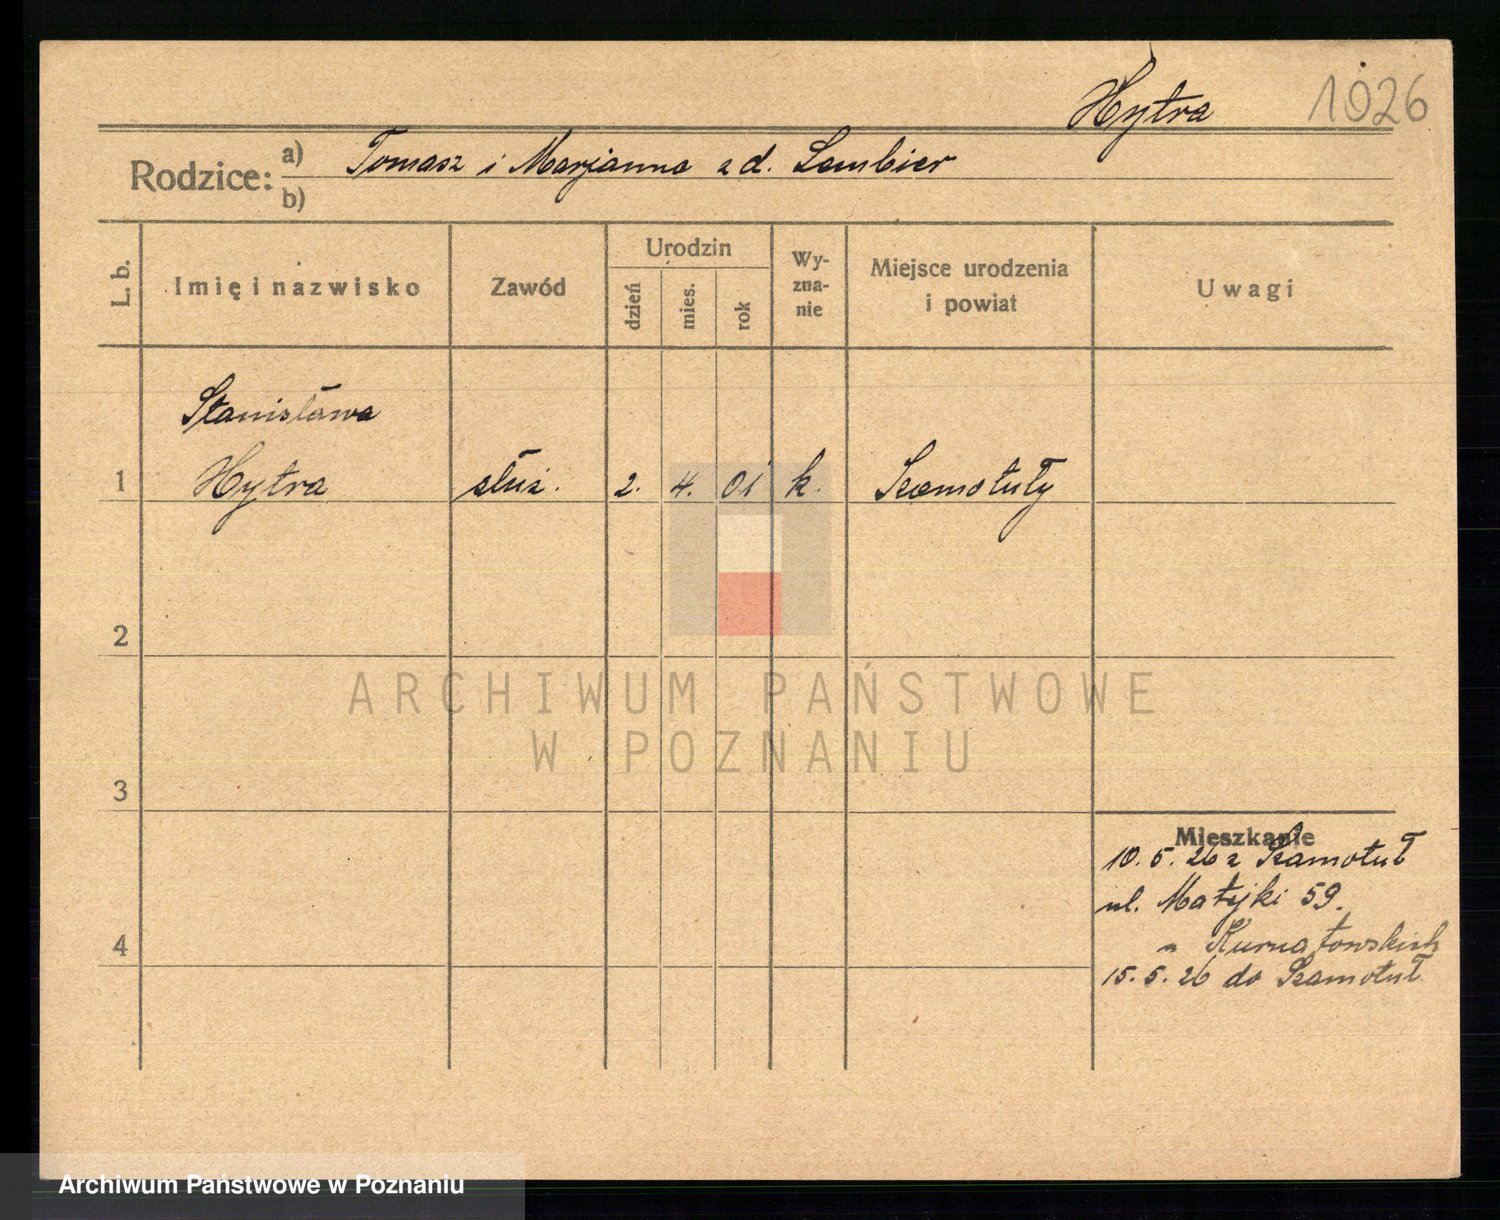 Hytra
1026
Rodzice:
a) Tomasz i Marjanna zd. Lembier
b)
L. b.
Imię i nazwisko
Zawód
Urodzin
dzień
mies.
rok
Wy-
zna-
nie
Miejsce urodzenia
i powiat
Uwagi
Stanisława
1 Hytra służ. 2. 4. 01 k. Szamotuły
2
ARCHIWUM PAŃSTWOWE
W POZNANIU
3
Mieszkanie
10. 5. 26 z Szamotuł
ul. Matejki 59.
4
Kurnatowskich
15. 5. 26 do Szamotuł
Archiwum Państwowe w Poznaniu